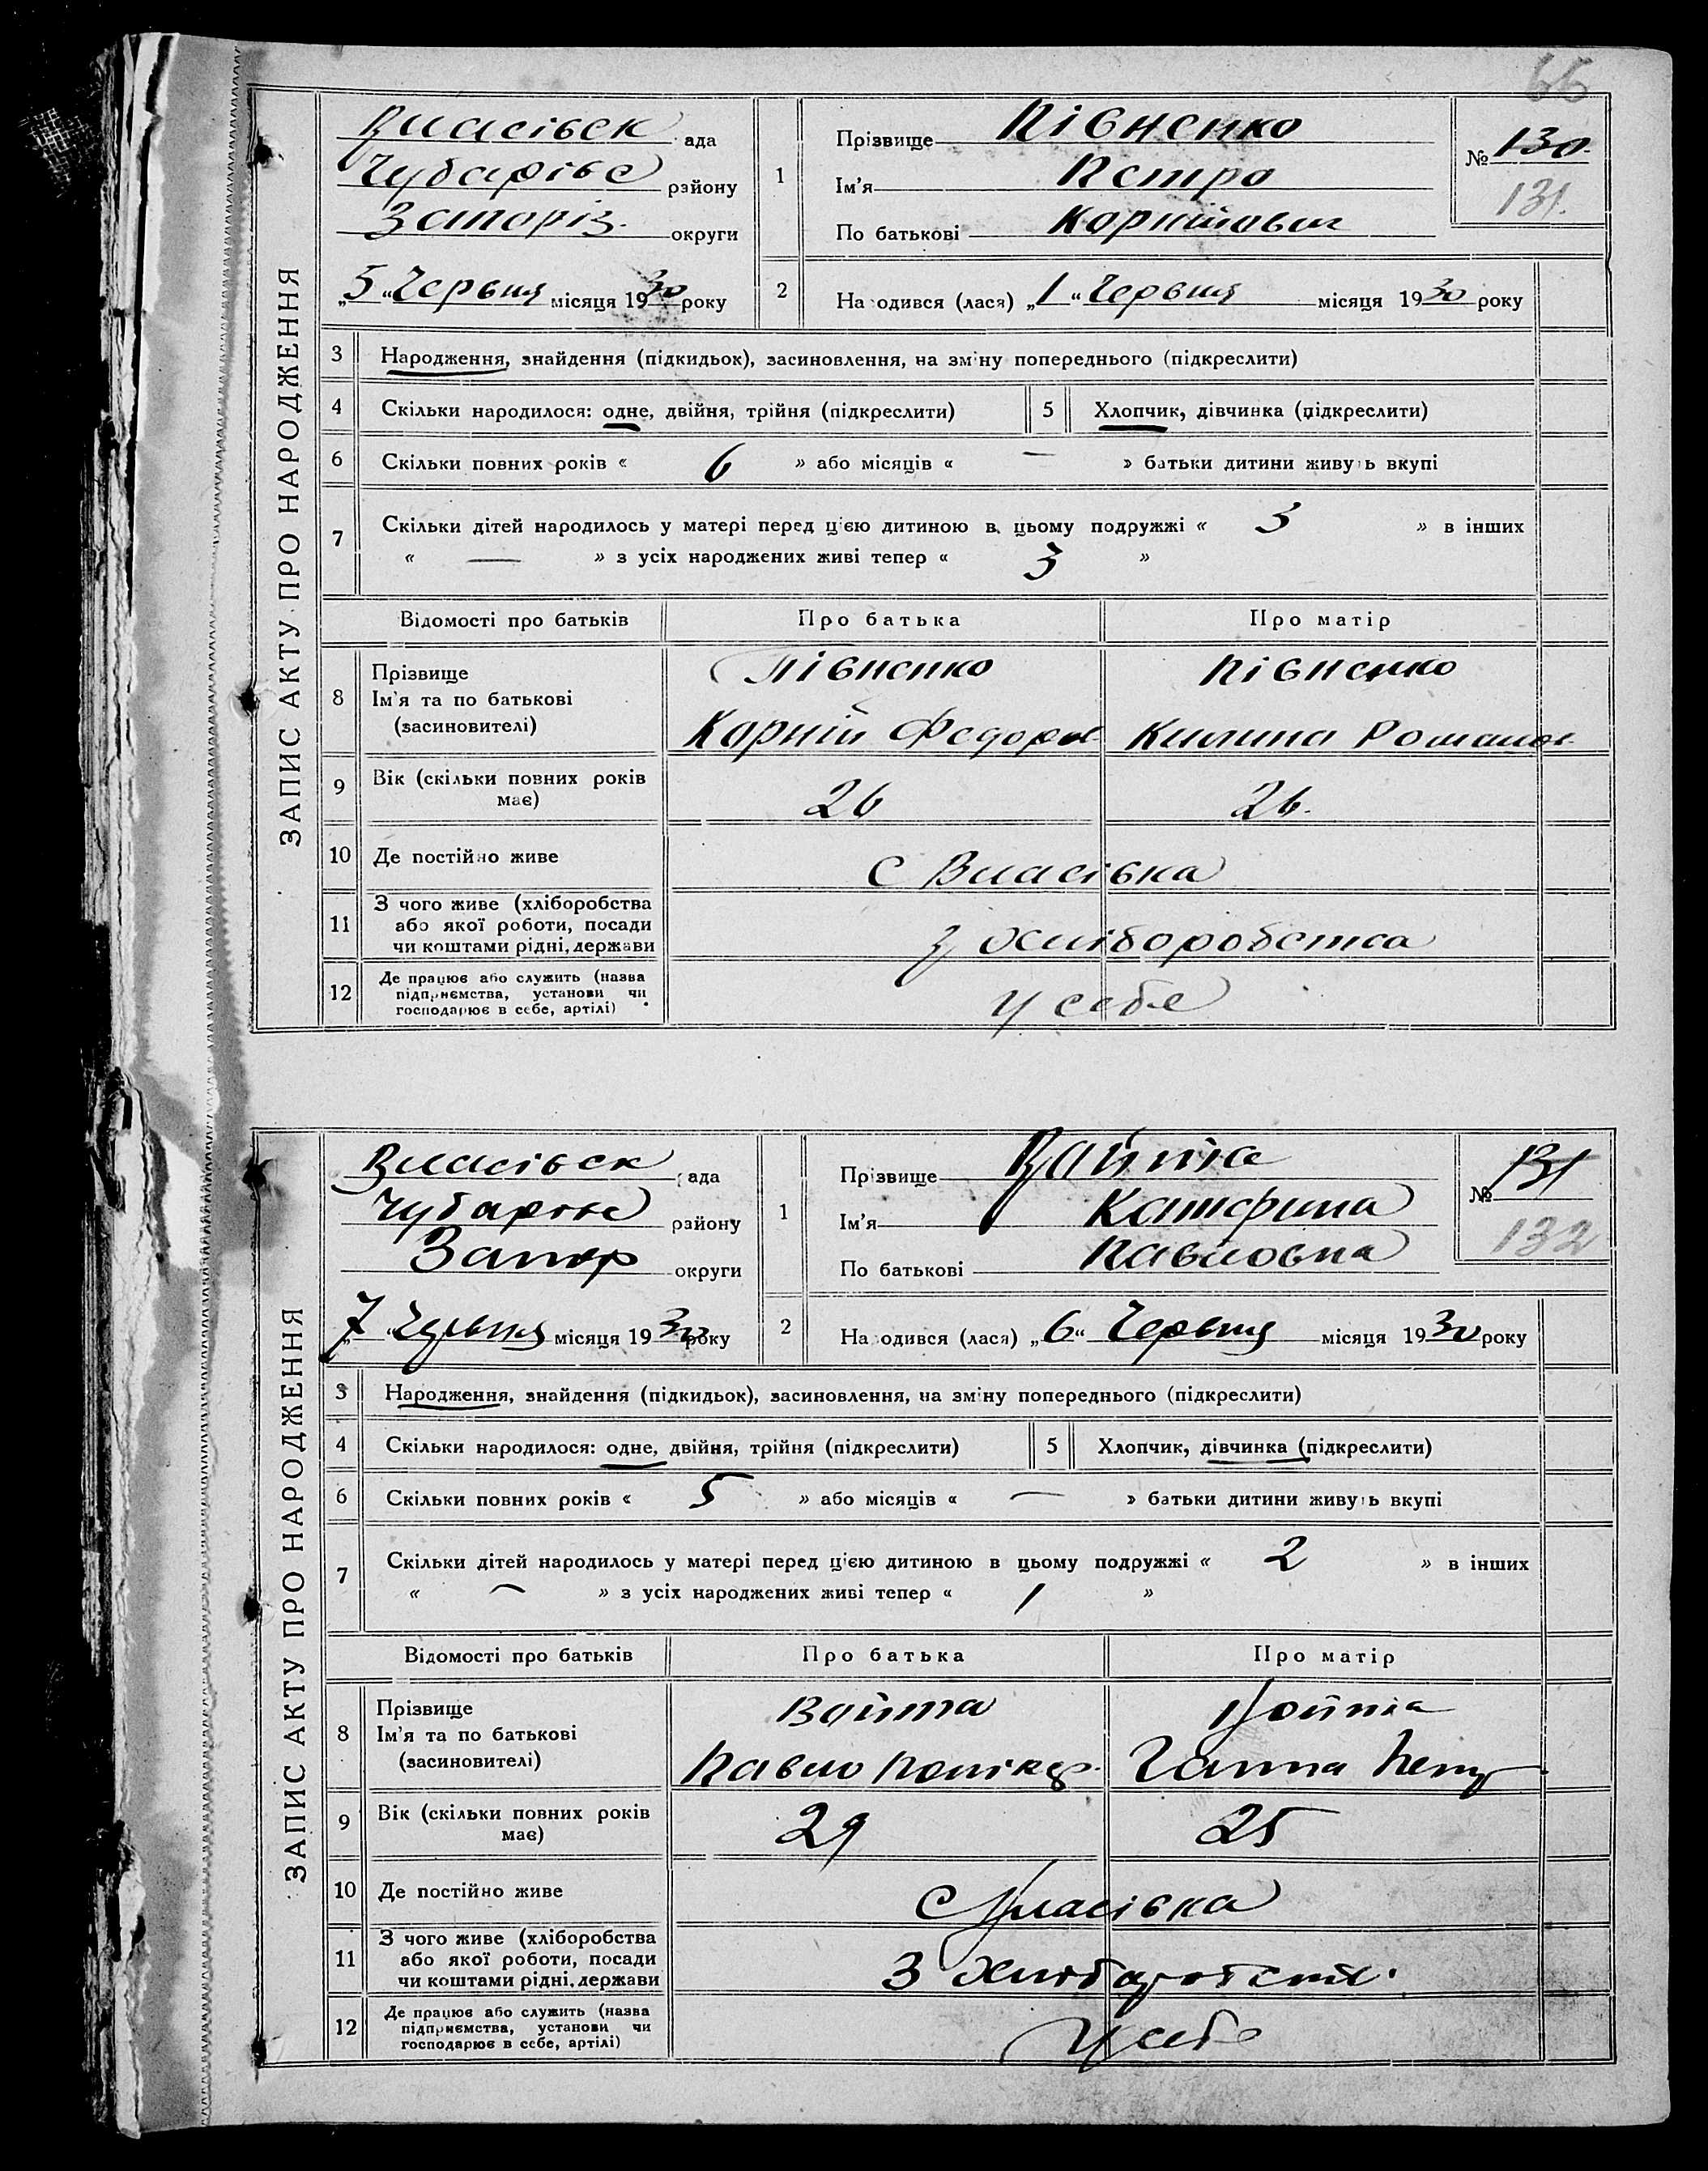 66
ЗАПИС АКТУ ПРО НАРОДЖЕННЯ
Власівськ ада
Чубарівс району
Запоріз. округи
„5“ Червня місяця 1930 року
1
Прізвище Півненко
Ім'я Петро
По батькові Корнійович
№ 130
131.
2 На одився (лася) „1“ Червня місяця 1930 року
3 Народження, знайдення (підкидьок), засиновлення, на зміну попереднього (підкреслити)
4 Скільки народилося: одне, двійня, трійня (підкреслити) 5 Хлопчик, дівчинка (підкреслити)
6 Скільки повних років « 6 » або місяців « — » батьки дитини живуть вкупі
7 Скільки дітей народилось у матері перед цією дитиною в цьому подружжі « 3 » в інших
« — » з усіх народжених живі тепер « 3 »
Відомості про батьків Про батька Про матір
8 Прізвище Півненко Півненко
Ім'я та по батькові
(засиновителі) Корній Федоров Килина Романов.
9 Вік (скільки повних років
має) 26 26.
10 Де постійно живе с Власівка
11 З чого живе (хліборобства
або якої роботи, посади
чи коштами рідні, держави з хліборобстса
12 Де працює або служить (назва
підприємства, установи чи
господарює в себе, артілі) у себе
ЗАПИС АКТУ ПРО НАРОДЖЕННЯ
Власівськ ада
Чубарівс району
Запор округи
„7“ Червня місяця 1930 року
1
Прізвище Войта
Ім'я Катерина
По батькові Павловна
№ 131
132
2 На одився (лася) „6“ Червня місяця 1930 року
3 Народження, знайдення (підкидьок), засиновлення, на зміну попереднього (підкреслити)
4 Скільки народилося: одне, двійня, трійня (підкреслити) 5 Хлопчик, дівчинка (підкреслити)
6 Скільки повних років « 5 » або місяців « — » батьки дитини живуть вкупі
7 Скільки дітей народилось у матері перед цією дитиною в цьому подружжі « 2 » в інших
« — » з усіх народжених живі тепер « 1 »
Відомості про батьків Про батька Про матір
8 Прізвище Войта Войта
Ім'я та по батькові
(засиновителі) Павло Полікар. Ганна
9 Вік (скільки повних років
має) 29 25
10 Де постійно живе С Власівка
11 З чого живе (хліборобства
або якої роботи, посади
чи коштами рідні, держави З хліборобств.
12 Де працює або служить (назва
підприємства, установи чи
господарює в себе, артілі) У себе